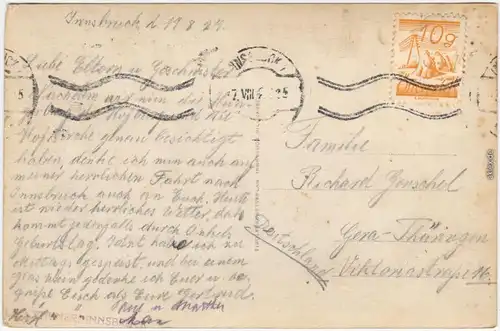 Innsbruck d. 19 8 27.
Liebe Eltern u Geschwister
Nachdem wir nun das
Hofkirche genau besichtigt
haben, denke ich nun auch auf
meiner herrlichen Fahrt nach
Innsbruck auch an Euch. Heute
ist wieder herrliches Wetter, das
kommt jedenfalls durch Onkels
Geburtstag. Jetzt habe ich zu
Mittag gespeist, und bei einem
Glas Wein gedenke ich Eurer u. be
grüße Euch als Eure Gertrud.
Herzl
INNSBRUCK
10g
Familie
Richard Henschel
Gera-Thüringen
Viktoriastraße
Deutschland